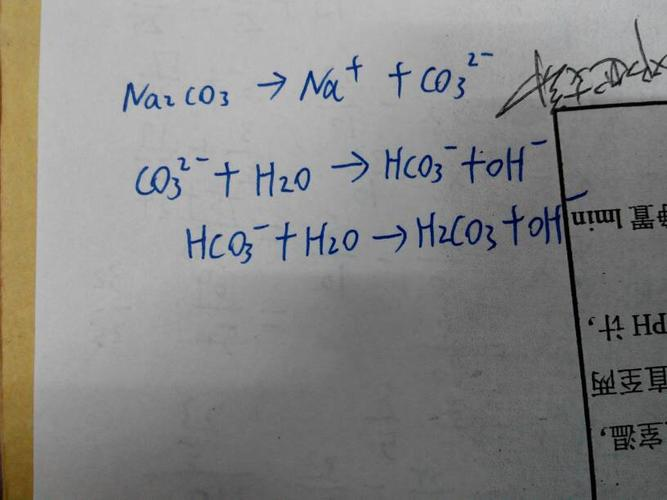 Na₂CO₃ → Na⁺ + CO₃²⁻
CO₃²⁻ + H₂O → HCO₃⁻ + OH⁻
HCO₃⁻ + H₂O → H₂CO₃ + OH⁻
静置 1min
PH 计,
直至两
室温,